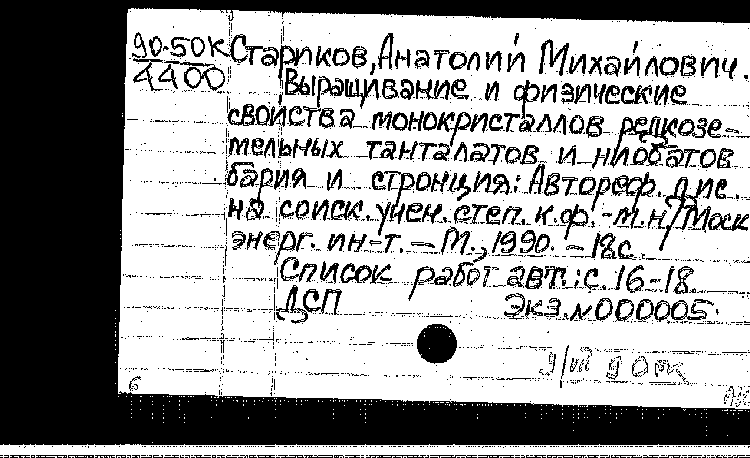 90-50К Стариков, Анатолий Михайлович.
4400 Выращивание и физические
свойства монокристаллов редкозе-
мельных танталатов и ниобатов
бария и стронция: Автореф. дис.
на соиск. учен. степ. к.ф.-м.н/Моск
энерг. ин-т. – М., 1990. – 18с.
Список работ авт.: с. 16-18.
ДСП Экз. N000005.
6